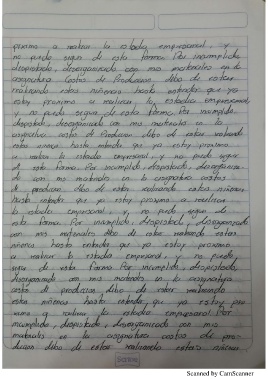 proximo a realizar la estadia empresarial, y
no puedo seguir de esta forma. Por incumplido
despistado, desorganizado con mis materiales en la
asignatura Costos de Produccion debo de estar
realizando estas
estoy proximo a realizar la estadia empresarial
y no puedo seguir de esta forma. Por incumplido
despistado, desorganizado con mis materiales en la
asignatura costos de Produccion debo de estar realizando
estas hasta entienda que ya estoy proximo
a realizar la estadia empresarial, y no puedo seguir
de esta forma. Por incumplido despistado, desorganizado
con mis materiales en la asignatura costos
de produccion debo de estar realizando estas
hasta entienda, que ya estoy proximo a realizar
la estadia empresarial, y no puedo seguir de
esta forma. Por incumplido, despistado, desorganizado
con mis materiales debo de estar realizando estas
hasta entienda que ya estoy proximo
a realizar la estadia empresarial, y no puedo
seguir de esta forma Por incumplido despistado,
desorganizado con mis materiales en la asignatura
costos de produccion debo de estar realizando
estas hasta entienda, que ya estoy
proximo a realizar, la estadia empresarial Por
incumplido, despistado, desorganizado con mis
materiales en la asignatura costos de pro-
duccion debo de estar realizando estas
Scanned by CamScanner